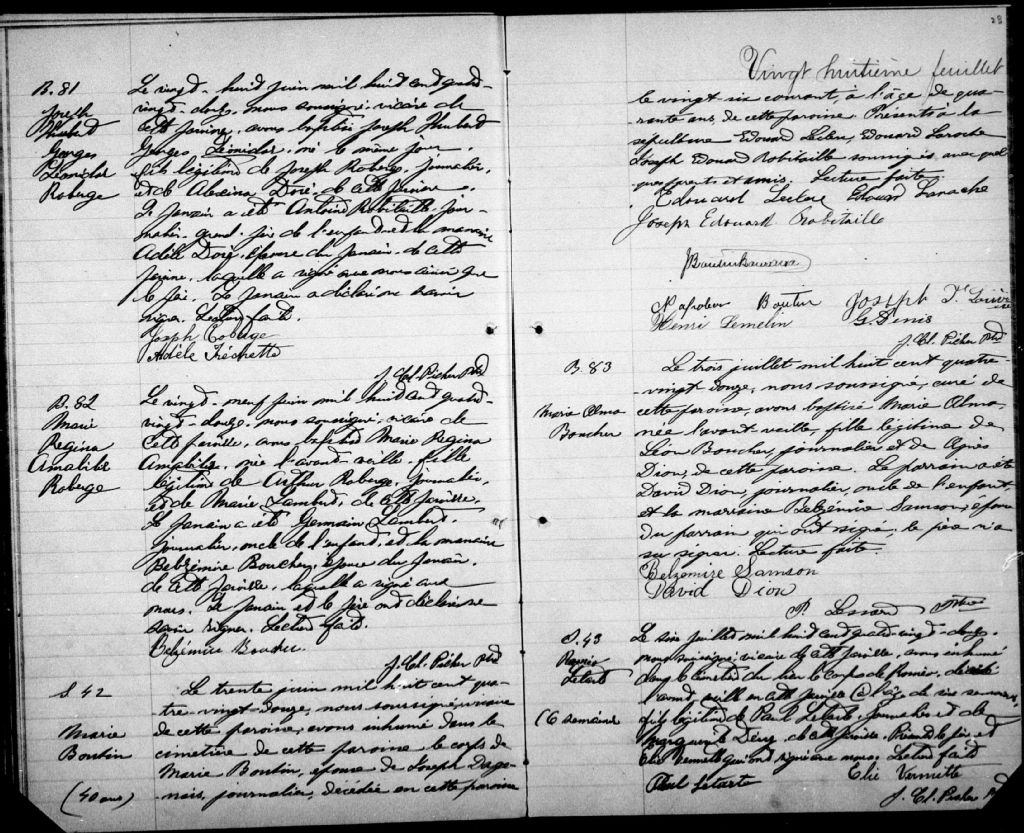 B. 81
Joseph
Hubert
Georges
Léonidas
Roberge
Le vingt-huit juin mil huit cent quatre-
vingt-douze, nous soussigné, vicaire de
cette paroisse, avons baptisé Joseph Hubert
Georges Léonidas, né le même jour,
fils légitime de Joseph Roberge, journalier,
et de Alexina Doré, de cette paroisse.
Le parrain a été Antoine Robitaille, jour-
nalier, grand-père de l'enfant et la marraine
Adèle épouse du parrain, de cette
paroisse, laquelle a signé avec nous ainsi que
le père. Le parrain a déclaré ne savoir
signer. Lecture faite.
Joseph Roberge
Adèle Fréchette
J. Cl. Picher Ptre
B. 82
Marie
Regina
Amabilis
Roberge
Le vingt-neuf juin mil huit cent quatre-
vingt-douze, nous soussigné, vicaire de
cette paroisse, avons baptisé Marie Regina
Amabilis, née l'avant-veille, fille
légitime de Arthur Roberge, journalier,
et de Marie Lambert, de cette paroisse.
Le parrain a été Germain Lambert,
journalier, oncle de l'enfant, et la marraine
Belzémire Boucher, épouse du parrain,
de cette paroisse, laquelle a signé avec
nous. Le parrain et le père ont déclaré ne
savoir signer. Lecture faite.
Belzémire Boucher
J. Cl. Picher Ptre
S 42
Marie
Boutin
(40 ans)
Le trente juin mil huit cent qua-
tre-vingt-douze, nous soussigné, vicaire
de cette paroisse, avons inhumé dans le
cimetière de cette paroisse le corps de
Marie Boutin, épouse de Joseph Dage-
nais, journalier, decédée en cette paroisse
28
Vingt huitième feuillet
le vingt-six courant, à l'âge de qua-
rante ans, de cette paroisse. Présents à la
sépulture Edouard Leclerc, Edouard Laroche
Joseph Edouard Robitaille soussignés, avec quel-
ques parents et amis. Lecture faite.
Edouard Leclerc Edouard Laroche
Joseph Edouard Robitaille
Napoléon Boutin Joseph T.
Henri Lemelin G. Denis
J. Cl. Picher Ptre
B. 83
Marie Alma
Boucher
Le trois juillet mil huit cent quatre-
vingt-douze, nous soussigné, curé de
cette paroisse, avons baptisé Marie Alma,
née l'avant-veille, fille légitime de
Léon Boucher, journalier et de Agnès
Dion, de cette paroisse. Le parrain a été
David Dion, journalier, oncle de l'enfant
et la marraine Belzémire Samson, épouse
du parrain qui ont signé, le père n'a
su signer. Lecture faite.
Belzemire Samson
David Dion
P. Lessard Ptre
S. 43
Letarte
(6 semaines)
Le six juillet mil huit cent quatre-vingt-douze,
nous soussigné, vicaire de cette paroisse, avons inhumé
dans le cimetière du lieu le corps de décédé
l'avant-veille en cette paroisse à l'âge de six semaines,
fils légitime de Paul Letarte, et de
Marguerite Déry, de cette paroisse. Présents le père et
Elie Vermette qui ont signé avec nous. Lecture faite
Paul Letarte Elie Vermette
J. Cl. Picher Ptre